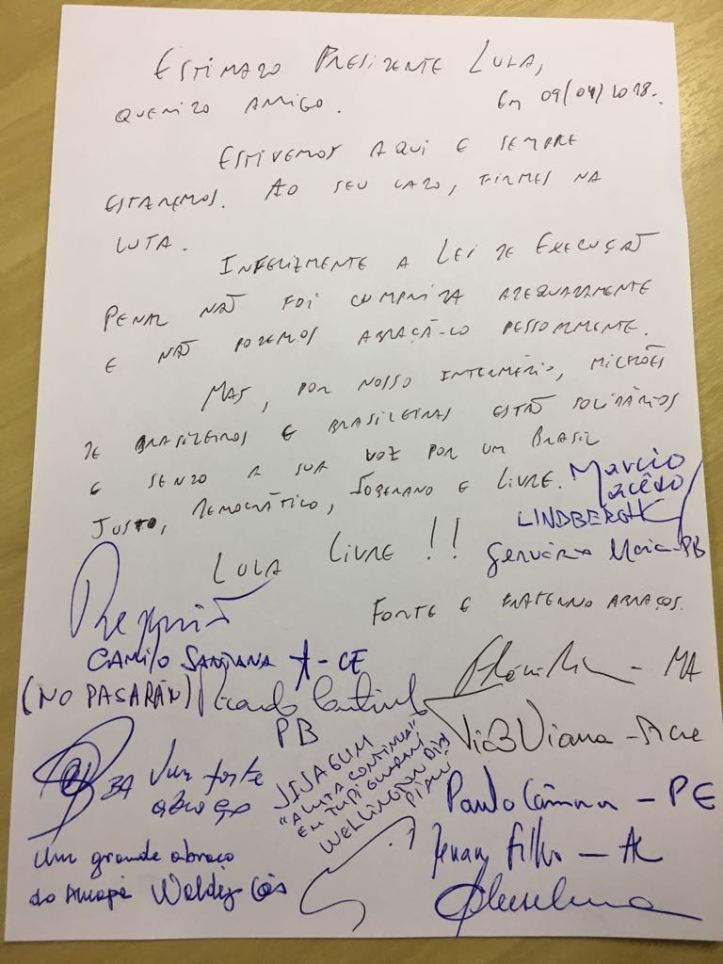 ESTIMADO PRESIDENTE LULA,
QUERIDO AMIGO. Em 09/04/2018.
ESTIVEMOS AQUI E SEMPRE
ESTAREMOS. AO SEU LADO, FIRMES NA
LUTA.
INFELIZMENTE A LEI DE EXECUÇÃO
PENAL NÃO FOI CUMPRIDA ADEQUADAMENTE
E NÃO PODEMOS ABRAÇÁ-LO PESSOALMENTE.
MAS, POR NOSSO INTERMÉDIO, MILHÕES
DE BRASILEIROS E BRASILEIRAS ESTÃO SOLIDÁRIOS
E SENDO A SUA VOZ POR UM BRASIL
JUSTO, DEMOCRÁTICO, SOBERANO E LIVRE.
Marcio
Macêdo
LINDBERGH
LULA LIVRE !!
Gervásio Maia-PB
FORTE E FRATERNO ABRAÇOS.
Requião
CAMILO SANTANA - CE
(NO PASARÁN)
Ricardo Coutinho
PB
Flávio Dino - MA
Tião Viana - Acre
BA Um forte
abraço
JAJAGUM
"A LUTA CONTINUA"
EM TUPI GUARANI
WELLINGTON DIAS
PIAUÍ
Paulo Câmara - PE
Renan Filho - AL
Um grande abraço
do Amapá Waldez Góes